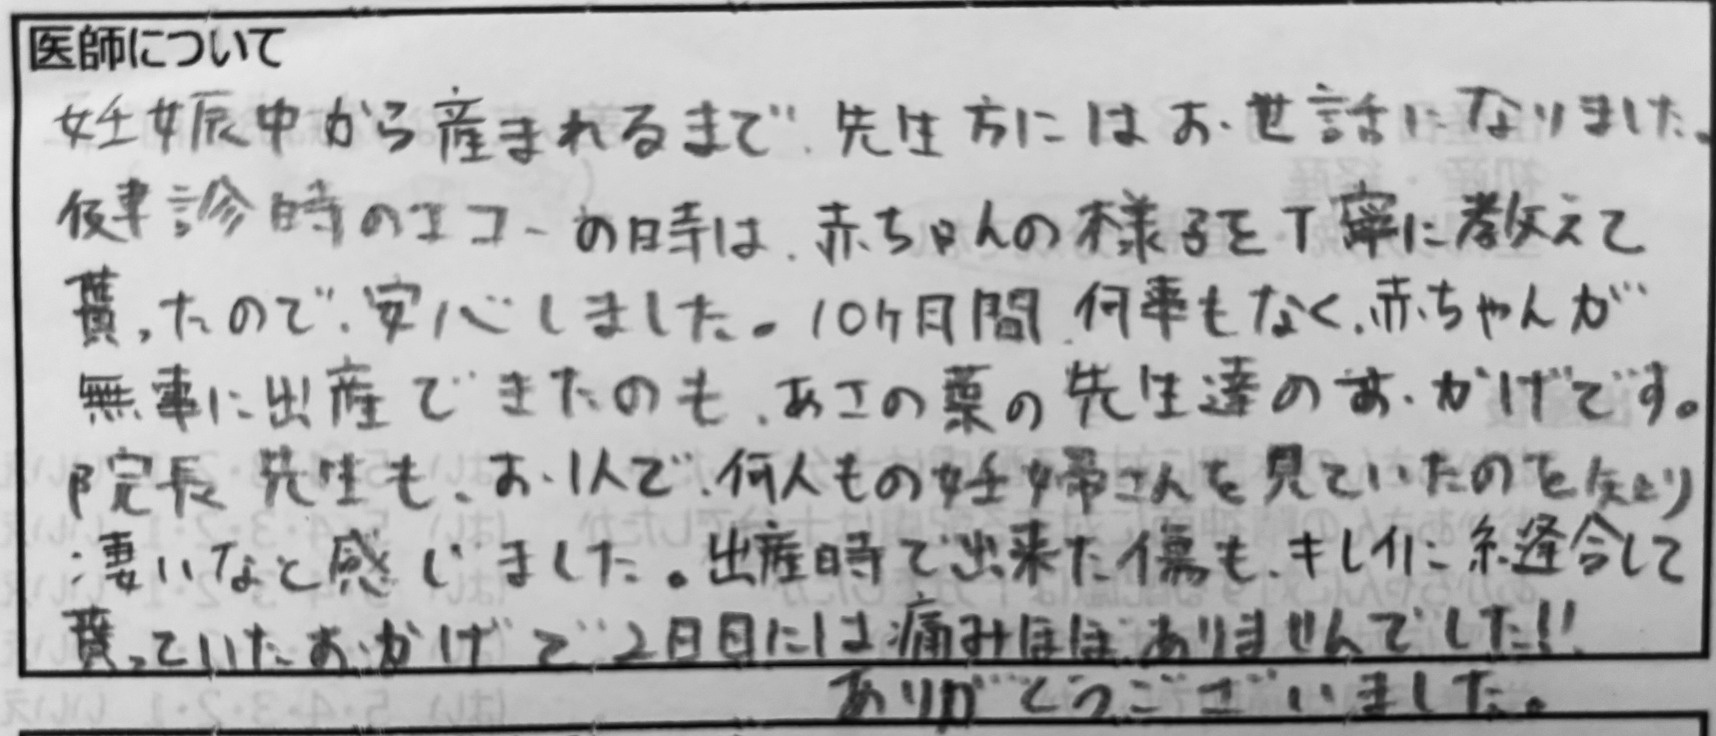 医師について
妊娠中から産まれるまで、先生方にはお世話になりました。
健診時のエコーの時は、赤ちゃんの様子を丁寧に教えて
貰ったので、安心しました。10ヶ月間、何事もなく、赤ちゃんが
無事に出産できたのも、あさの葉の先生達のおかげです。
院長先生も、お1人で、何人もの妊婦さんを見ていたのを知り
凄いなと感じました。出産時で出来た傷も、キレイに縫合して
貰っていたおかげで2日目には痛みほぼありませんでした!!
ありがとうございました。